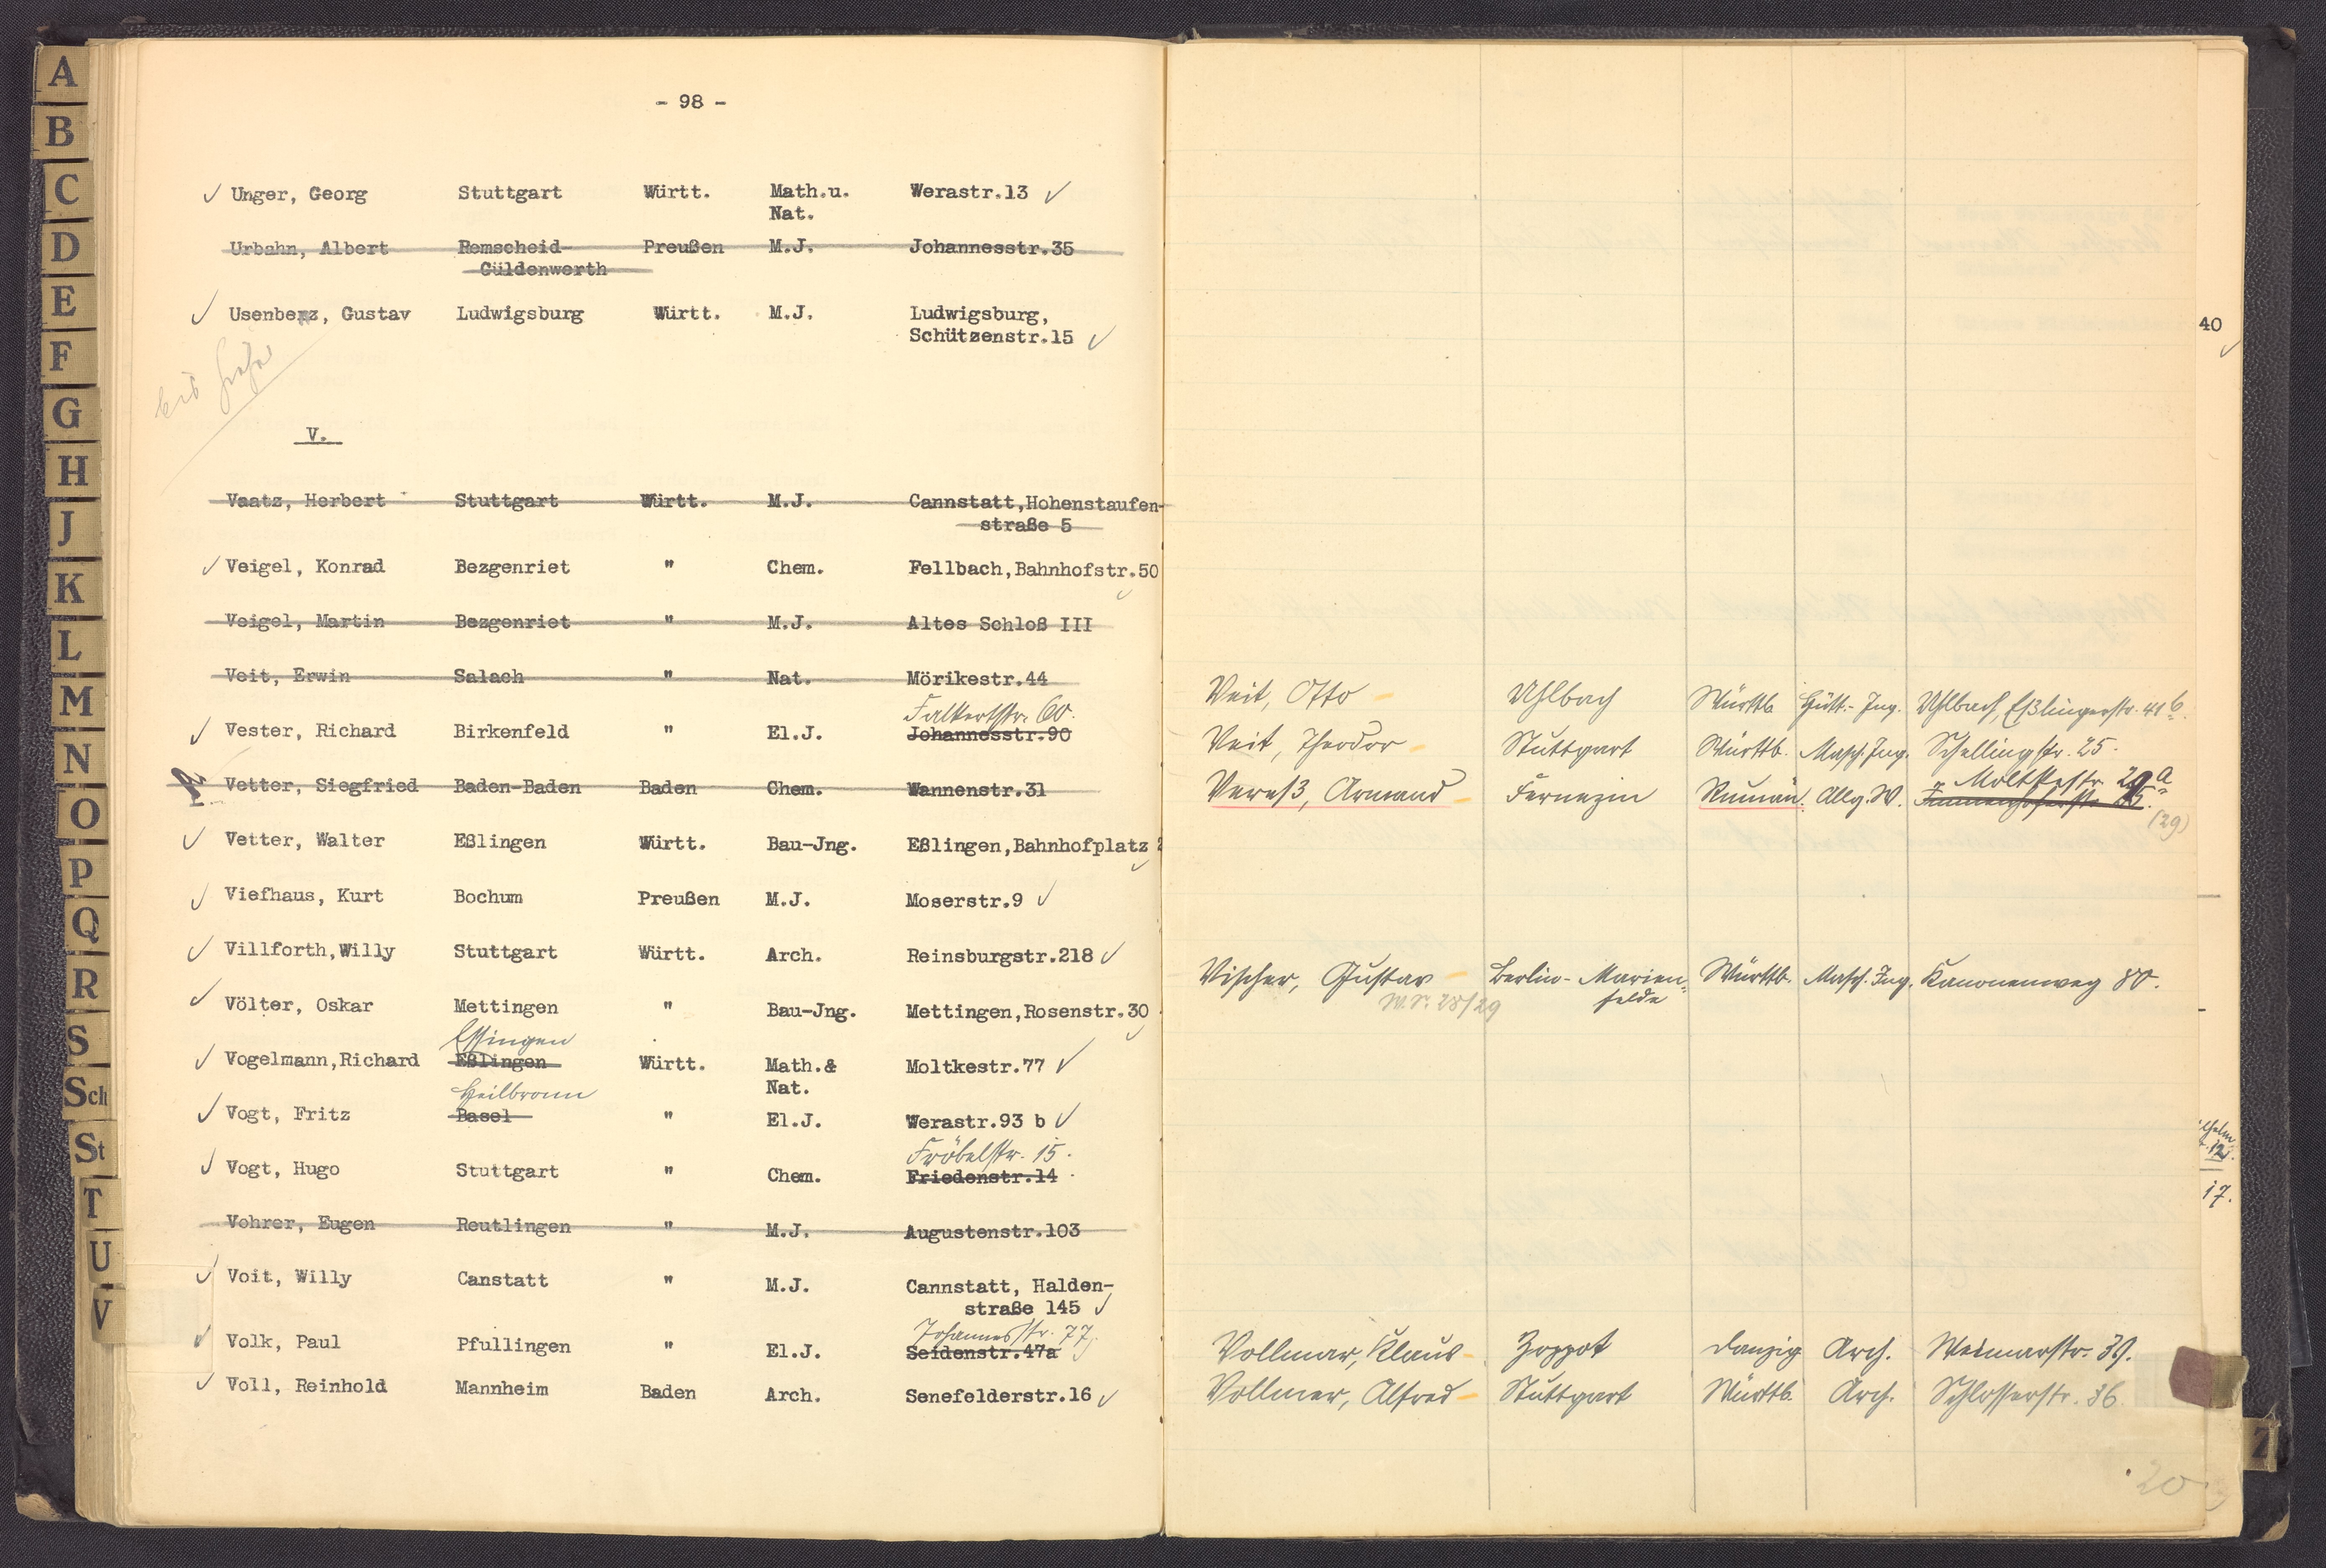 - 98 -
Unger, Georg Stuttgart Württ. Math.u. Werastr.13
Nat.
Urbahn, Albert Remscheid- Preußen M.J. Johannesstr.35
Güldenwerth
Usenbenz, Gustav Ludwigsburg Württ. M.J. Ludwigsburg,
Schützenstr.15
bis
V.
Vaatz, Herbert Stuttgart Württ. M.J. Cannstatt,Hohenstaufen-
straße 5
Veigel, Konrad Bezgenriet " Chem. Fellbach,Bahnhofstr.50
Veigel, Martin Bezgenriet " M.J. Altes Schloß III
Veit, Erwin Salach " Nat. Mörikestr.44
Falkertstr. 60.
Vester, Richard Birkenfeld " El.J. Johannesstr.90
Vetter, Siegfried Baden-Baden Baden Chem. Wannenstr.31
Vetter, Walter Eßlingen Württ. Bau-Jng. Eßlingen,Bahnhofplatz
Viefhaus, Kurt Bochum Preußen M.J. Moserstr.9
Villforth,Willy Stuttgart Württ. Arch. Reinsburgstr.218
Völter, Oskar Mettingen " Bau-Jng. Mettingen,Rosenstr.30
Essingen
Vogelmann,Richard Eßlingen Württ. Math.& Moltkestr.77
Nat.
Heilbronn
Vogt, Fritz Basel " El.J. Werastr.93 b
Fröbelstr. 15.
Vogt, Hugo Stuttgart " Chem. Friedenstr.14
Vohrer, Eugen Reutlingen " M.J. Augustenstr.103
Voit, Willy Canstatt " M.J. Cannstatt, Halden-
straße 145
Johannesstr. 77
Volk, Paul Pfullingen " El.J. Seidenstr.47a
Voll, Reinhold Mannheim Baden Arch. Senefelderstr.16
Veit, Otto Uhlbach Württb. Hütt.-Ing. Uhlbach, Eßlingerstr. 41 b.
Veit, Theodor Stuttgart Württb. Masch. Ing. Schellingstr. 25.
Moltkestr. 29 a
Vereß, Armand Fernezin Rumän. Allg. W.
(29)
Vischer, Gustav Berlin-Marien- Württb. Masch. Ing. Kanonenweg 80.
felde
W.S. 28/29
Vollmar, Klaus Zoppot Danzig Arch. Weimarstr. 39.
Vollmer, Alfred Stuttgart Württb. Arch. Schlosserstr. 36
20
40
12.
17.
A
B
C
D
E
F
G
H
J
K
L
M
N
O
P
Q
R
S
Sch
St
T
U
V
Z